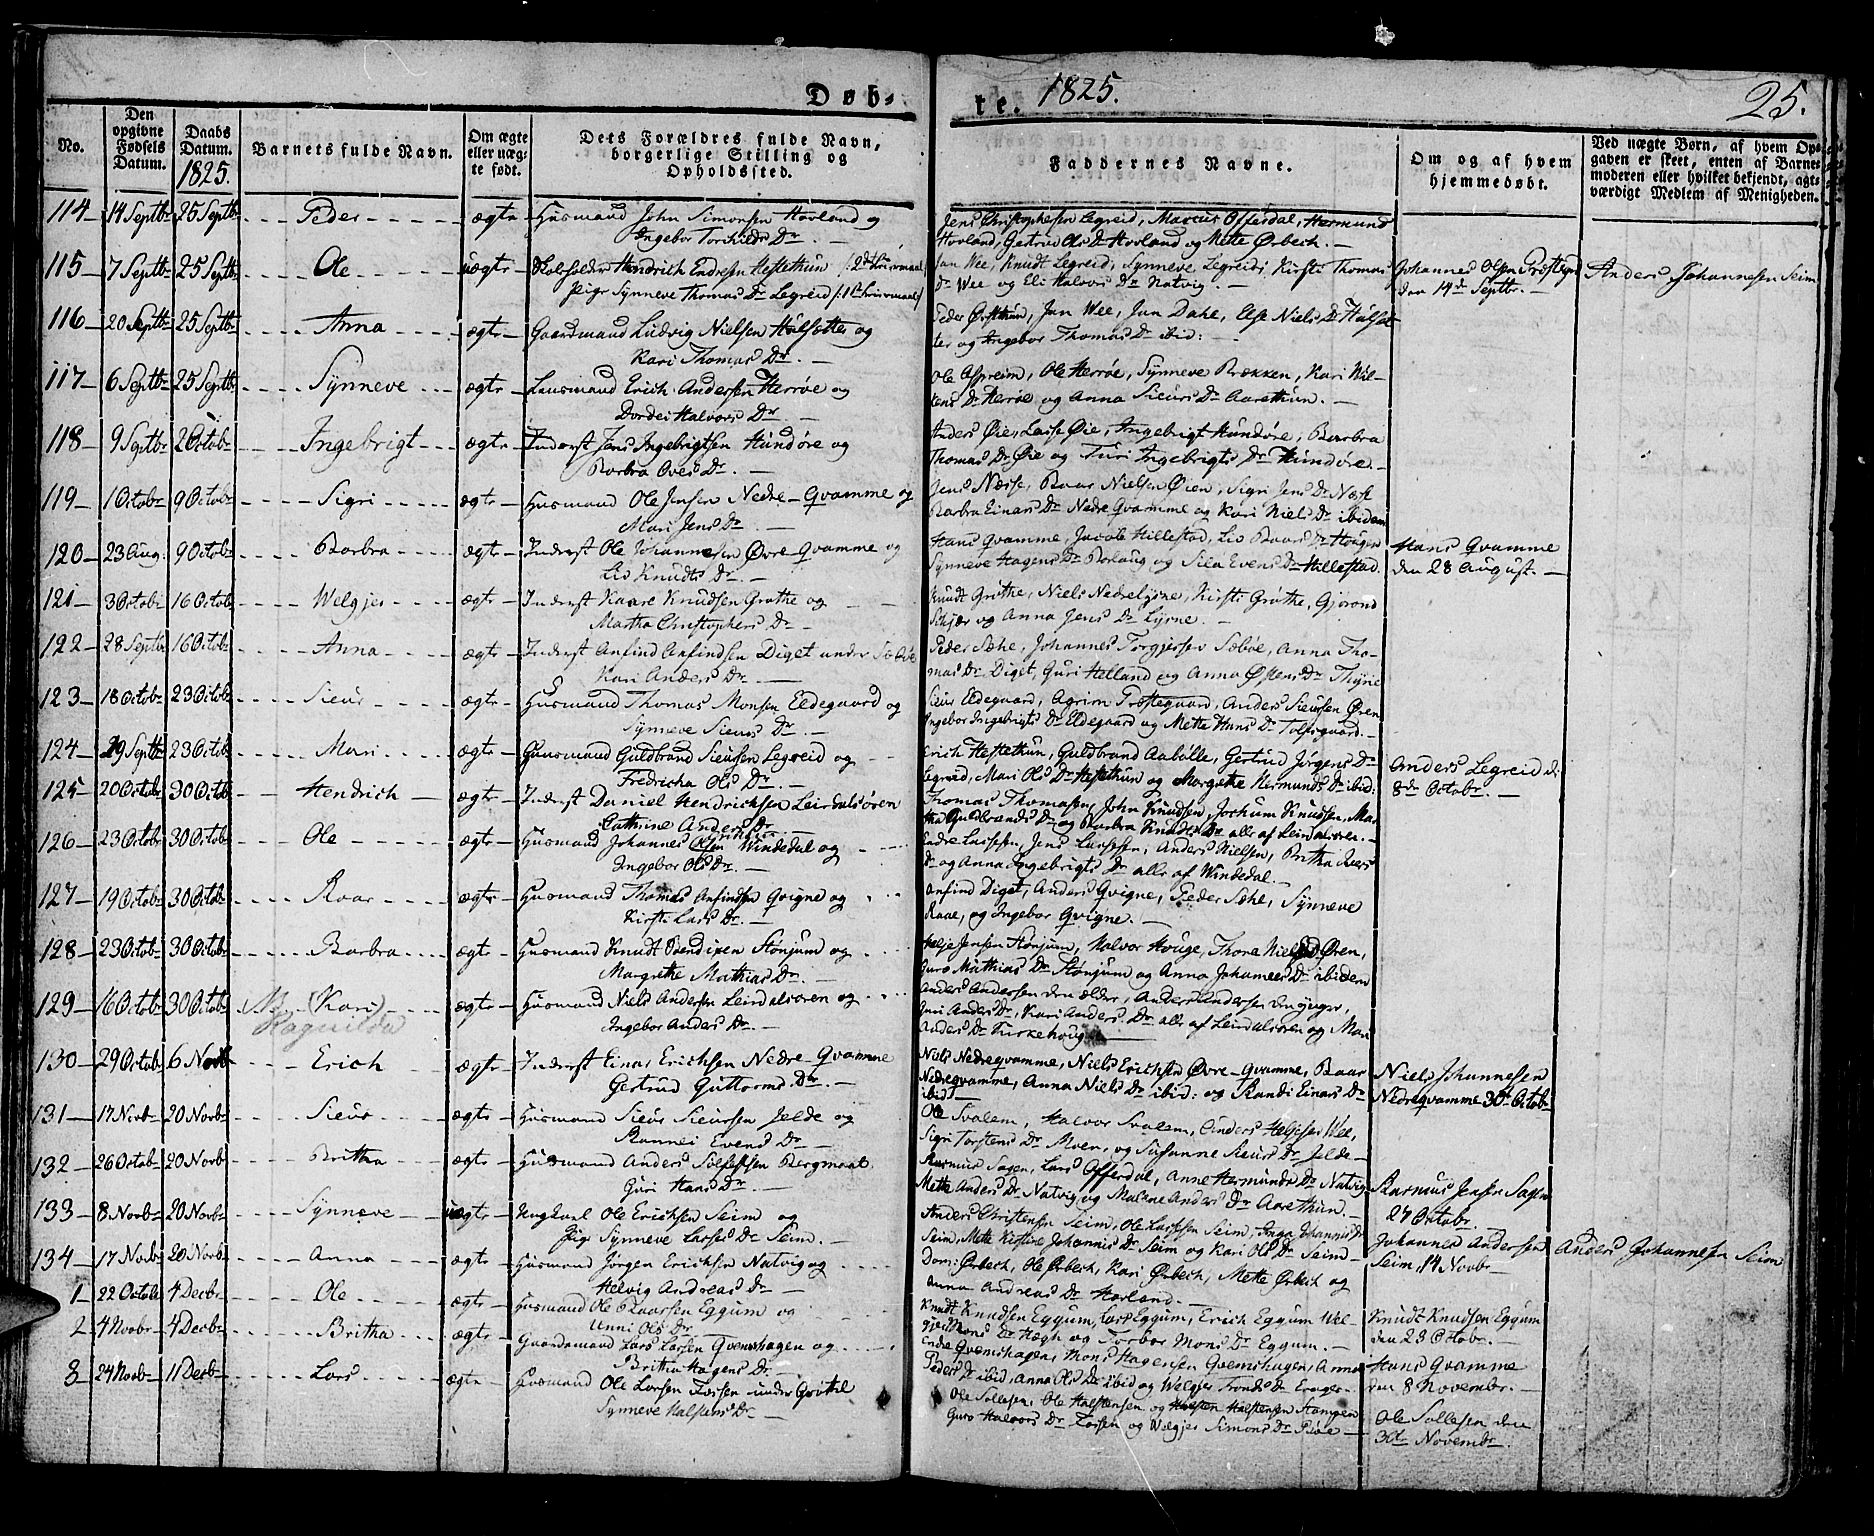 Døb-
te. 1825.
25.
No.
Den opgivne Fødsels Datum.
Daabs Datum. 1825.
Barnets fulde Navn.
Om ægte eller uægte født.
Dets Forældres fulde Navn, borgerlige Stilling og Opholdssted.
Faddernes Navne.
Om og af hvem hjemmedøbt.
Ved uægte Børn, af hvem Opgaven er skeet, enten af Barnemoderen eller hvilket bekjendt, agtværdigt Medlem af Menigheden.
114 14 Septbr 25 Septbr Peder ægte Husmand John Simonsen Hovland og
Ingebor Torchilds Dr.
Jens Christophersen Legreid, Marcus Offerdal, Hermund
Hovland, Gertrud Ols Dr Hovland og Mette Ørbech.
115 7 Septbr 25 Septbr Ole uægte Hendrich Endresen Hestethun
Pige Synneve Thomas Dr Legreid
Jan Wee, Knudt Legreid, Synneve Legreid, Kirsti Thomas
Dr Wee og Eli Halvors Dr Natvig.
Johannes Olsen
den 14de Septbr.
Anders Johannesen Seim
116 20 Septbr 25 Septbr Anna ægte Gaardmand Ludvig Nielsen Hulsætter og
Kari Thomas Dr.
Peder Ørstthun, Jan Wee, Jan Dahl, Else Niels Dr Hulset-
ter og Ingebor Thomas Dr ibid:
117 6 Septbr 25 Septbr Synneve ægte Erich Andersen Herrøe og
Dordei Halvors Dr.
Ole Aspreim, Ole Herrøe, Synneve Brækken, Kari Wil-
kens Dr Herrøe og Anna Sieurs Dr Aarethun.
118 9 Septbr 2 Octobr Ingebrigt ægte Inderst Jens Ingebrigtsen Hundøre og
Barbra Oves Dr.
Anders Øie, Lasse Øie, Ingebrigt Hundøre, Barbra
Thomas Dr Øie og Turi Ingebrigts Dr Hundøre.
119 1 Octobr 9 Octobr Sigri ægte Husmand Ole Jensen Nedre-Qvamme og
Mari Jens Dr.
Jens Næsse, Baar Nielsen Øien, Sigri Jens Dr Næse
Barbra Einars Dr Nedre Qvamme og Kari Niels Dr ibidem
120 23 Aug. 9 Octobr Barbra ægte Inderst Ole Johannesen Øvre-Qvamme og
Lis Knudts Dr.
Hans Qvamme, Jacob Hillestad, Lis Baars Dr Hougen
Synneve Hagens Dr Borlaug og Sila Evens Dr Hillestad.
Hans Qvamme
den 28 August.
121 3 Octobr 16 Octobr Welgjer ægte Inderst Kaare Knudsen Grøthe og
Martha Christophers Dr
Knudt Grøthe, Niels Nedreljøne, Kirsti Grøthe, Gjørond
Schjær og Anna Jens Dr Ljøne.
122 28 Septbr 16 Octobr Anna ægte Inderst Anfind Anfindsen Diget under Sæbøe
Kari Anders Dr.
Peder Sæhe, Johannes Torgjersen Sæbøe, Anna Tho-
mas Dr Diget, Guri Helland og Anna Østens Dr Thyrie
123 18 Octobr 23 Octobr Sieur ægte Husmand Thomas Monsen Eldegaard og
Synneve Sieurs Dr
Sieur Eldegaard, Agrim Prøstegaard, Anders Sieursen Øren
Ingebor Ingebrigts Dr Eldegaard og Mette Hans Dr
124 29 Septbr 23 Octobr Mari ægte Huusmand Guldbrand Sieursen Legreid og
Fredricha Ols Dr
Erich Hestethun, Guldbrand Aabølle, Gertrud Jørgens Dr
Legreid, Mari Ols Dr Hestethun og Margrethe Hermunds Dr ibid:
Anders Legreid d:
8de Octobr.
125 20 Octobr 30 Octobr Hendrich ægte Inderst Daniel Hendrichsen Leirdalsøren
Cathrine Anders Dr
Thomas Thomasen, John Knudsen, Jochum Knudsen, Mar-
tha Guldbrands Dr og Barbra Knudts Dr alle af Leirdalsøren.
126 23 Octobr 30 Octobr Ole ægte Husmand Johannes Olsen Windedal og
Ingebor Ols Dr.
Endre Lassesen, Jens Lassesen, Anders Nielsen, Britha Iver
Dr og Anna Ingebrigts Dr alle af Windedal.
127 19 Octobr 30 Octobr Roar ægte Husmand Thomas Anfindsen Qvigne og
Kirsti Lars Dr.
Anfind Diget, Anders Qvigne, Peder Sæhe, Synneve
Raae, og Ingebor Qvigne.
128 23 Octobr 30 Octobr Barbra ægte Husmand Knudt Bendixen Stønjum og
Margrethe Mathias Dr.
Helje Jensen Stønjum, Halvor Houge, Thone Niels Dr Øren,
Guro Mathias Dr Stønjum og Anna Johannes Dr ibidem
129 16 Octobr 30 Octobr NB. (Kari) Ragnilda ægte Husmand Niels Andersen Leirdalsøren og
Ingebor Anders Dr
Anders Andersen den ældre, Anders Andersen den yngre,
Guri Anders Dr, Kari Anders Dr alle af Leirdalsøren og Mari
Anders Dr
130 29 Octobr 6 Novbr Erich ægte Inderst Einar Erichsen Nedre-Qvamme
Gertrud Guttorms Dr.
Niels Nedreqvamme, Niels Erichsen Øvre-Qvamme, Baar
Nedreqvamme, Anna Niels Dr ibid: og Randi Einars Dr
ibid
Niels Johannesen
Nedreqvamme 30te Octobr
131 17 Novbr 20 Novbr Sieur ægte Husmand Sieur Sieursen Jelde og
Rannei Evens Dr
Ole Svalem, Halvor Svalem, Anders Heljesen Wee,
Sigri Torstens Dr Moen, og Susanne Sieurs Dr Jelde
132 26 Octobr 20 Novbr Britha ægte Husmand Anders Solfestsen Bergmaal
Guri Hans Dr
Rasmus Sagen, Lars Offerdal, Anne Hermunds Dr Natvig
Mette Anders Dr Natvig og Malene Anders Dr Aarethun.
Rasmus Jensen Sagen
27 Octobr.
133 8 Novbr 20 Novbr Synneve uægte Ungkarl Ole Erichsen Seim og
Pige Synneve Lasses Dr Seim.
Anders Christensen Seim, Ole Lassesen Seim, Inga Johannis Dr
Seim, Mette Kirstine Johannis Dr Seim og Kari Ols Dr Seim
Johannes Andersen
Seim, 14 Novbr
Anders Johannesen Seim
134 17 Novbr 20 Novbr Anna ægte Husmand Jørgen Erichsen Natvig og
Helvig Andreas Dr
Dori Ørbech, Ole Ørbech, Kari Ørbech, Mette Ørbech og
Anna Andreas Dr Hovland.
1 22 Octobr 4 Decbr Ole ægte Husmand Ole Baarsen Eggum og
Unni Ols Dr
Knudt Knudsen Eggum, Lars Eggum, Erich Eggum Wel-
Mons Dr Hægh og Torbor Mons Dr Eggum.
Knudt Knudsen Eggum
den 23 Octobr.
2 4 Novbr 4 Decbr Britha ægte Gaardmand Lars Larsen Qvemshagen og
Britha Hagens Dr
Endre Qvemshagen, Mons Hagensen Qvemshagen, Anna
Peders Dr ibid, Anna Ols Dr ibid og Welgjer Tronds Dr
Hans Qvamme
den 8 Novembr.
3 24 Novbr 11 Decbr Lars ægte Husmand Ole Larsen Forsen under Grøthe
Synneve Halstens Dr
Ole Sollesen, Ole Halstensen og Halsten Halstensen Stampen
Guro Halvors Dr Forsen og Welgjer Simons Dr
Ole Sollesen den
30te Novembr.